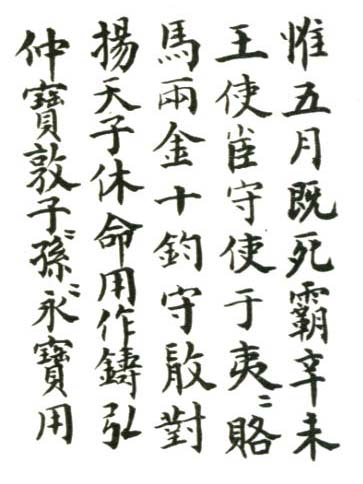 惟五月既死霸辛未
王使小臣守使于夷〻賂
馬兩金十鈞守敢對
揚天子休命用作鑄弘
仲寶敦子〻孫〻永寶用